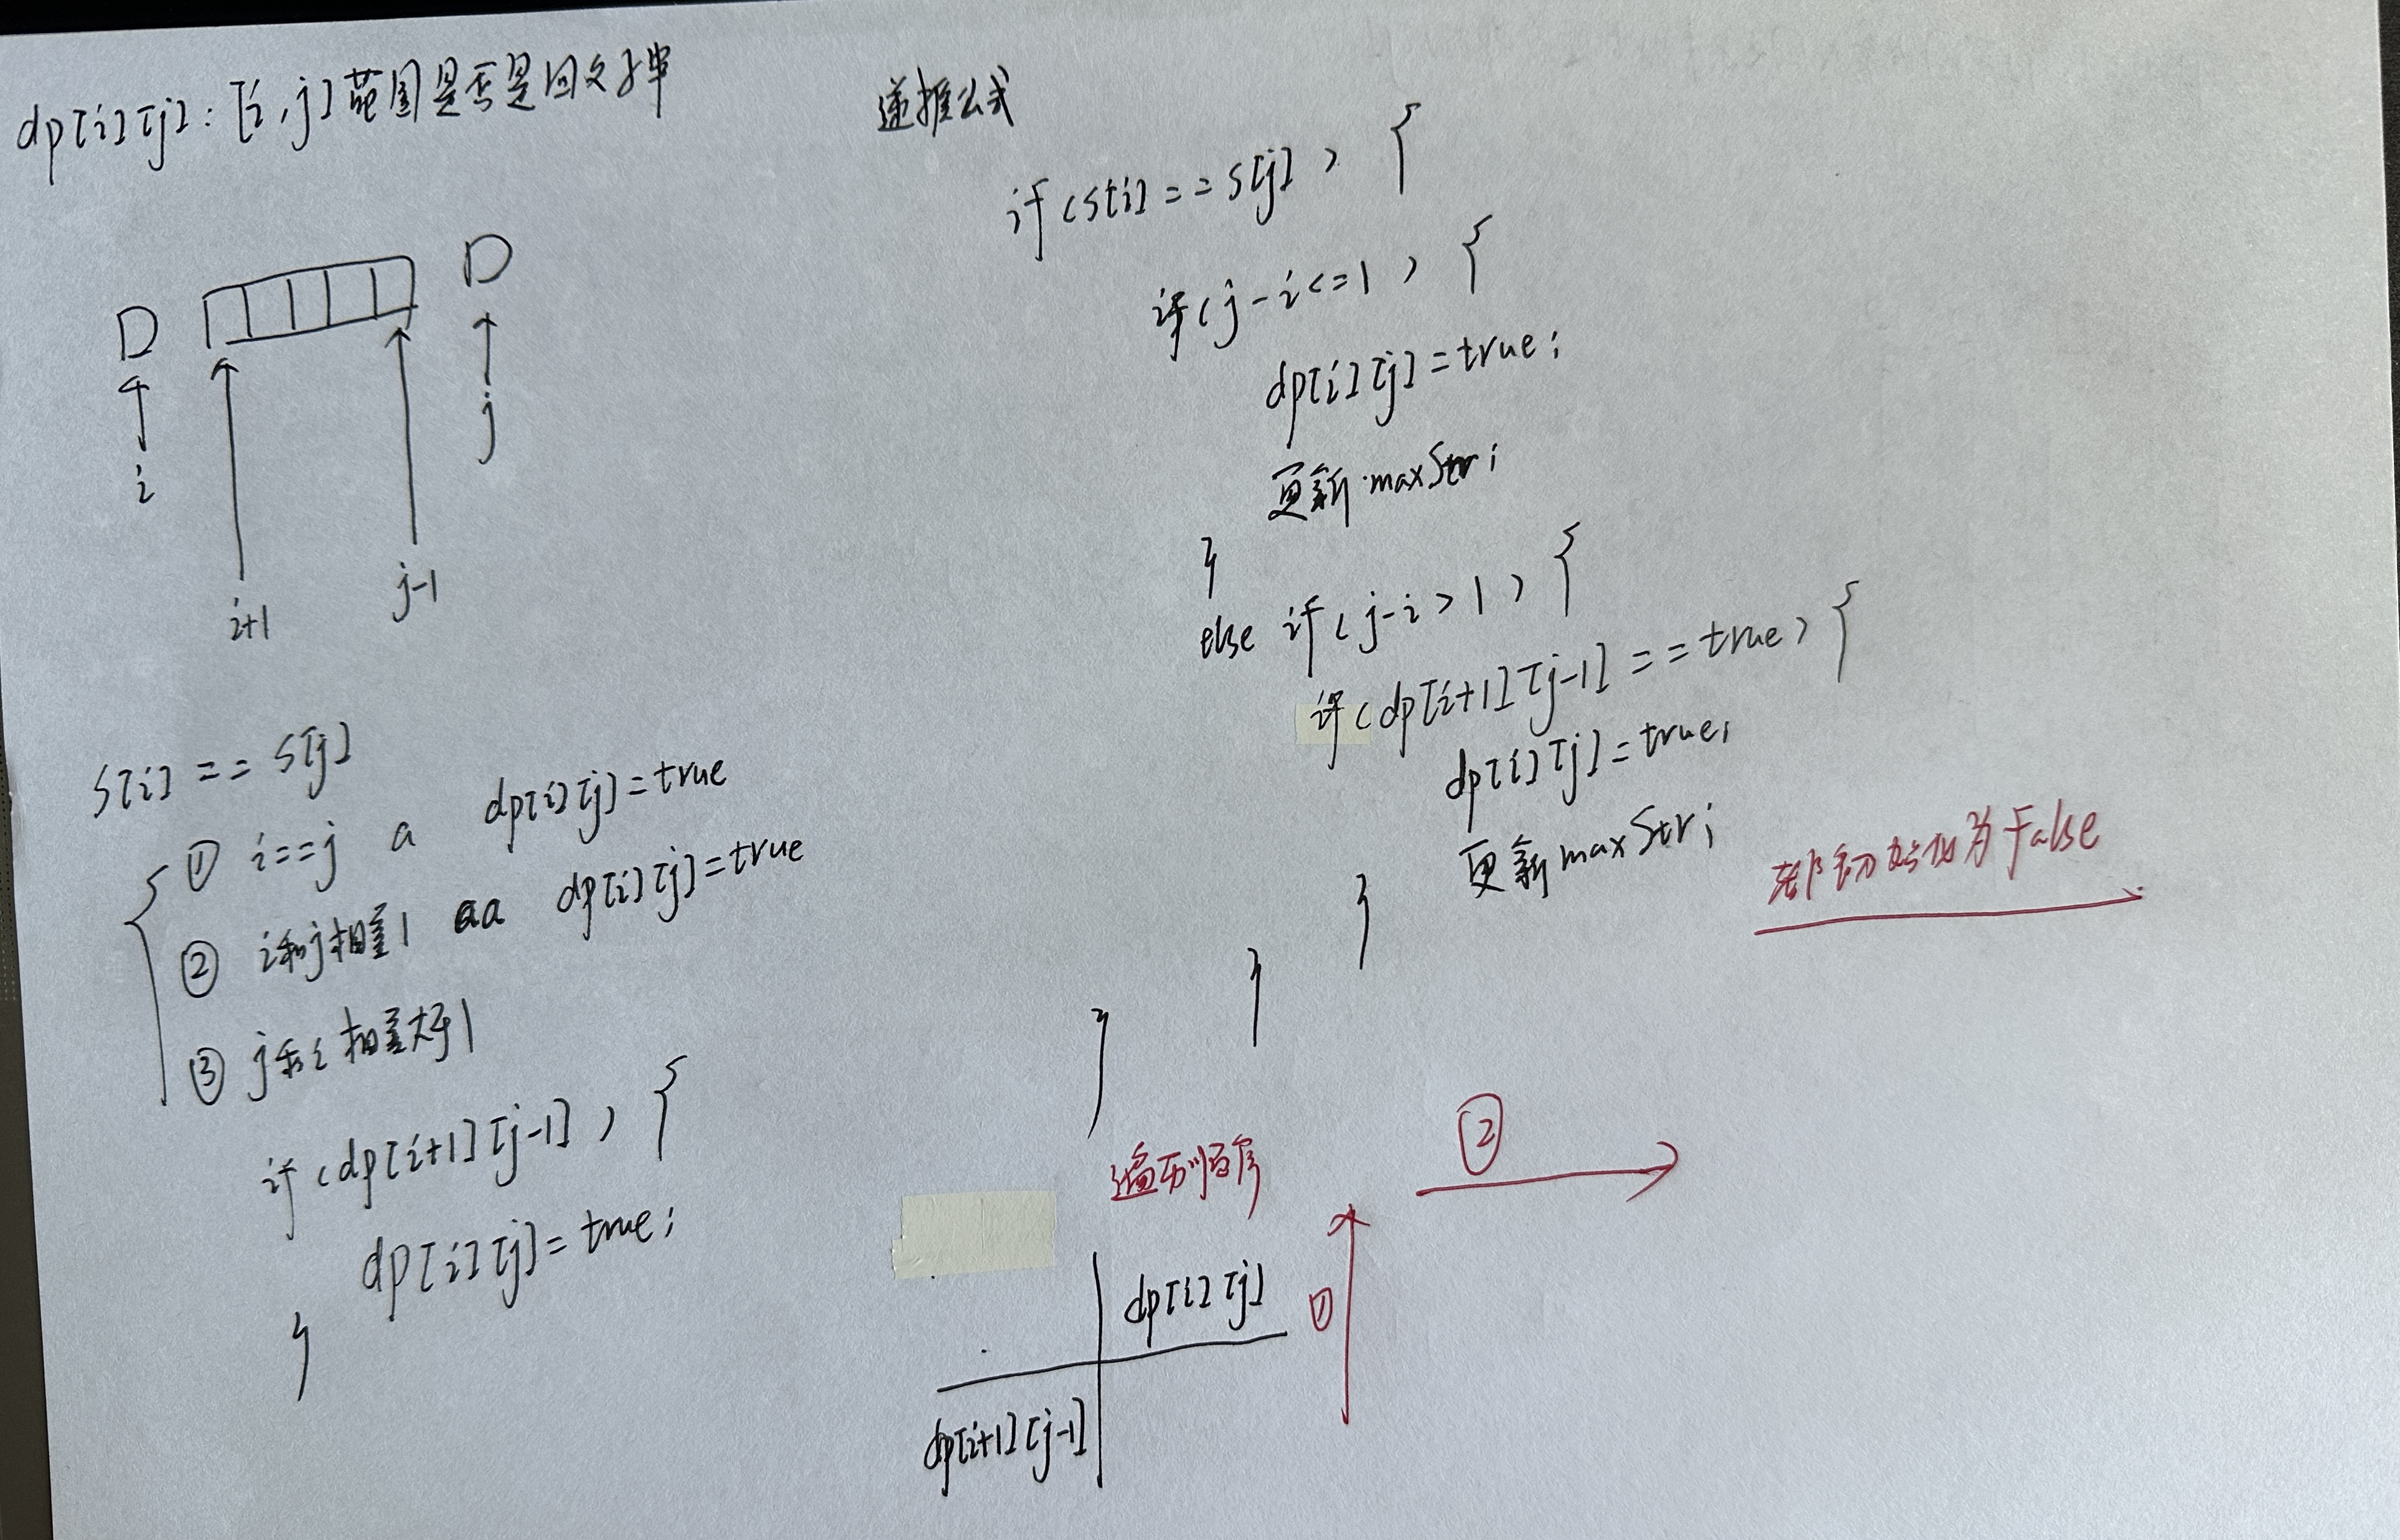 dp[i][j]: [i,j]范围是否是回文子串
D D
i
j
i+1
j-1
s[i] == s[j]
① i==j a dp[i][j]=true
② i和j相差1 aa dp[i][j]=true
③ j和i相差大于1
if(dp[i+1][j-1]) {
dp[i][j]=true;
}
递推公式
if(s[i]==s[j]) {
if(j-i<=1) {
dp[i][j]=true;
更新maxStr;
}
else if(j-i>1) {
if(dp[i+1][j-1]==true) {
dp[i][j]=true;
更新maxStr;
}
}
}
都初始化为False
遍历顺序
②
①
dp[i][j]
dp[i+1][j-1]